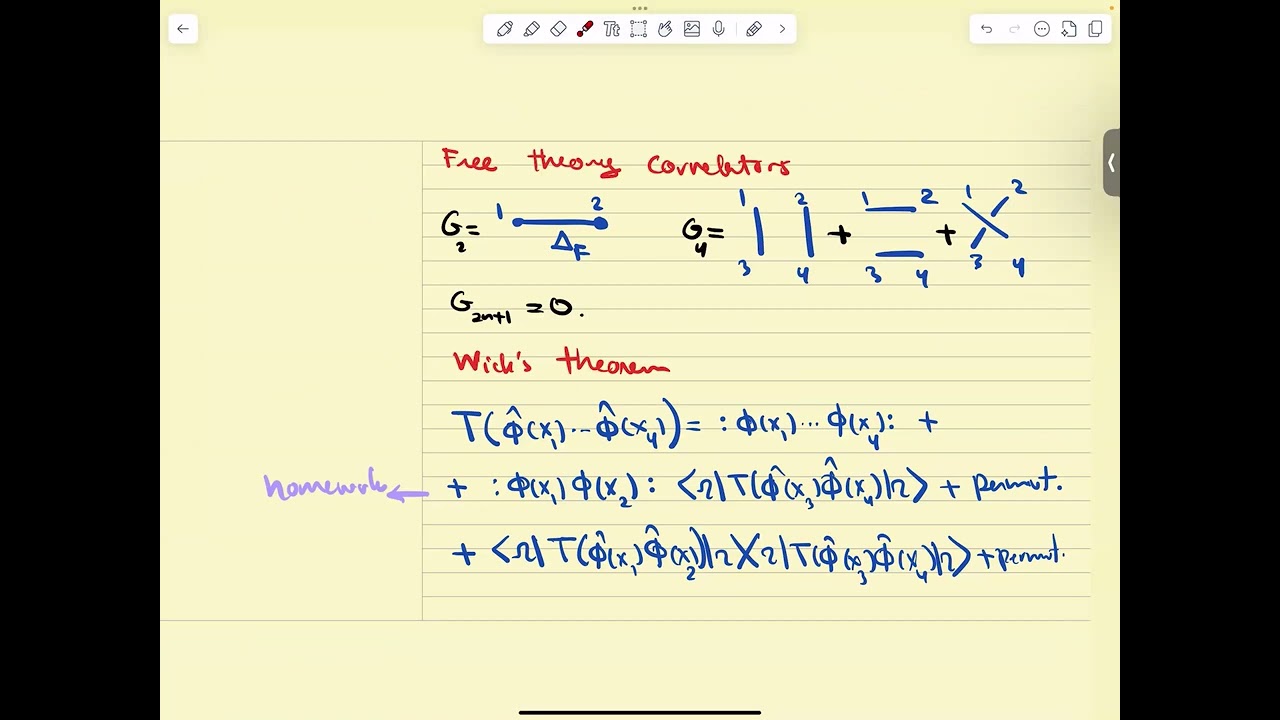 Free theory correlators
G₂ = 1 2 Δ_F G₄ = 1 2 3 4 + 1 2 3 4 + 1 2 3 4
G₂ₙ₊₁ = 0.
Wick's theorem
T(ϕ̂(x₁)...ϕ̂(x₄)) = :ϕ(x₁)...ϕ(x₄): +
homework ← + :ϕ(x₁)ϕ(x₂): <Ω|T(ϕ̂(x₃)ϕ̂(x₄)|Ω> + permut.
+ <Ω|T(ϕ̂(x₁)ϕ̂(x₂))|Ω><Ω|T(ϕ̂(x₃)ϕ̂(x₄)|Ω> + permut.
Tt